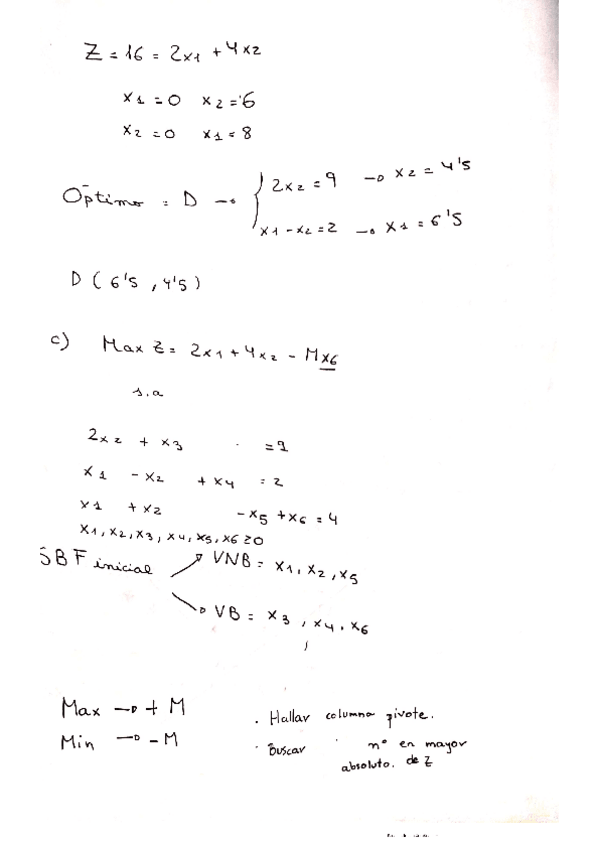 Z = 16 = 2x1 + 4x2
x1 = 0 x2 = 6
x2 = 0 x1 = 8
Óptimo = D → { 2x2 = 9 → x2 = 4'5
x1 - x2 = 2 → x1 = 6'5
D ( 6'5 , 4'5 )
c) Max Z = 2x1 + 4x2 - Mx6
s.a
2x2 + x3 = 9
x1 - x2 + x4 = 2
x1 + x2 - x5 + x6 = 4
x1, x2, x3, x4, x5, x6 ≥ 0
SBF inicial → VNB = x1, x2, x5
→ VB = x3, x4, x6
Max → + M . Hallar columna pivote.
Min → - M . Buscar nº en mayor
absoluto. de Z